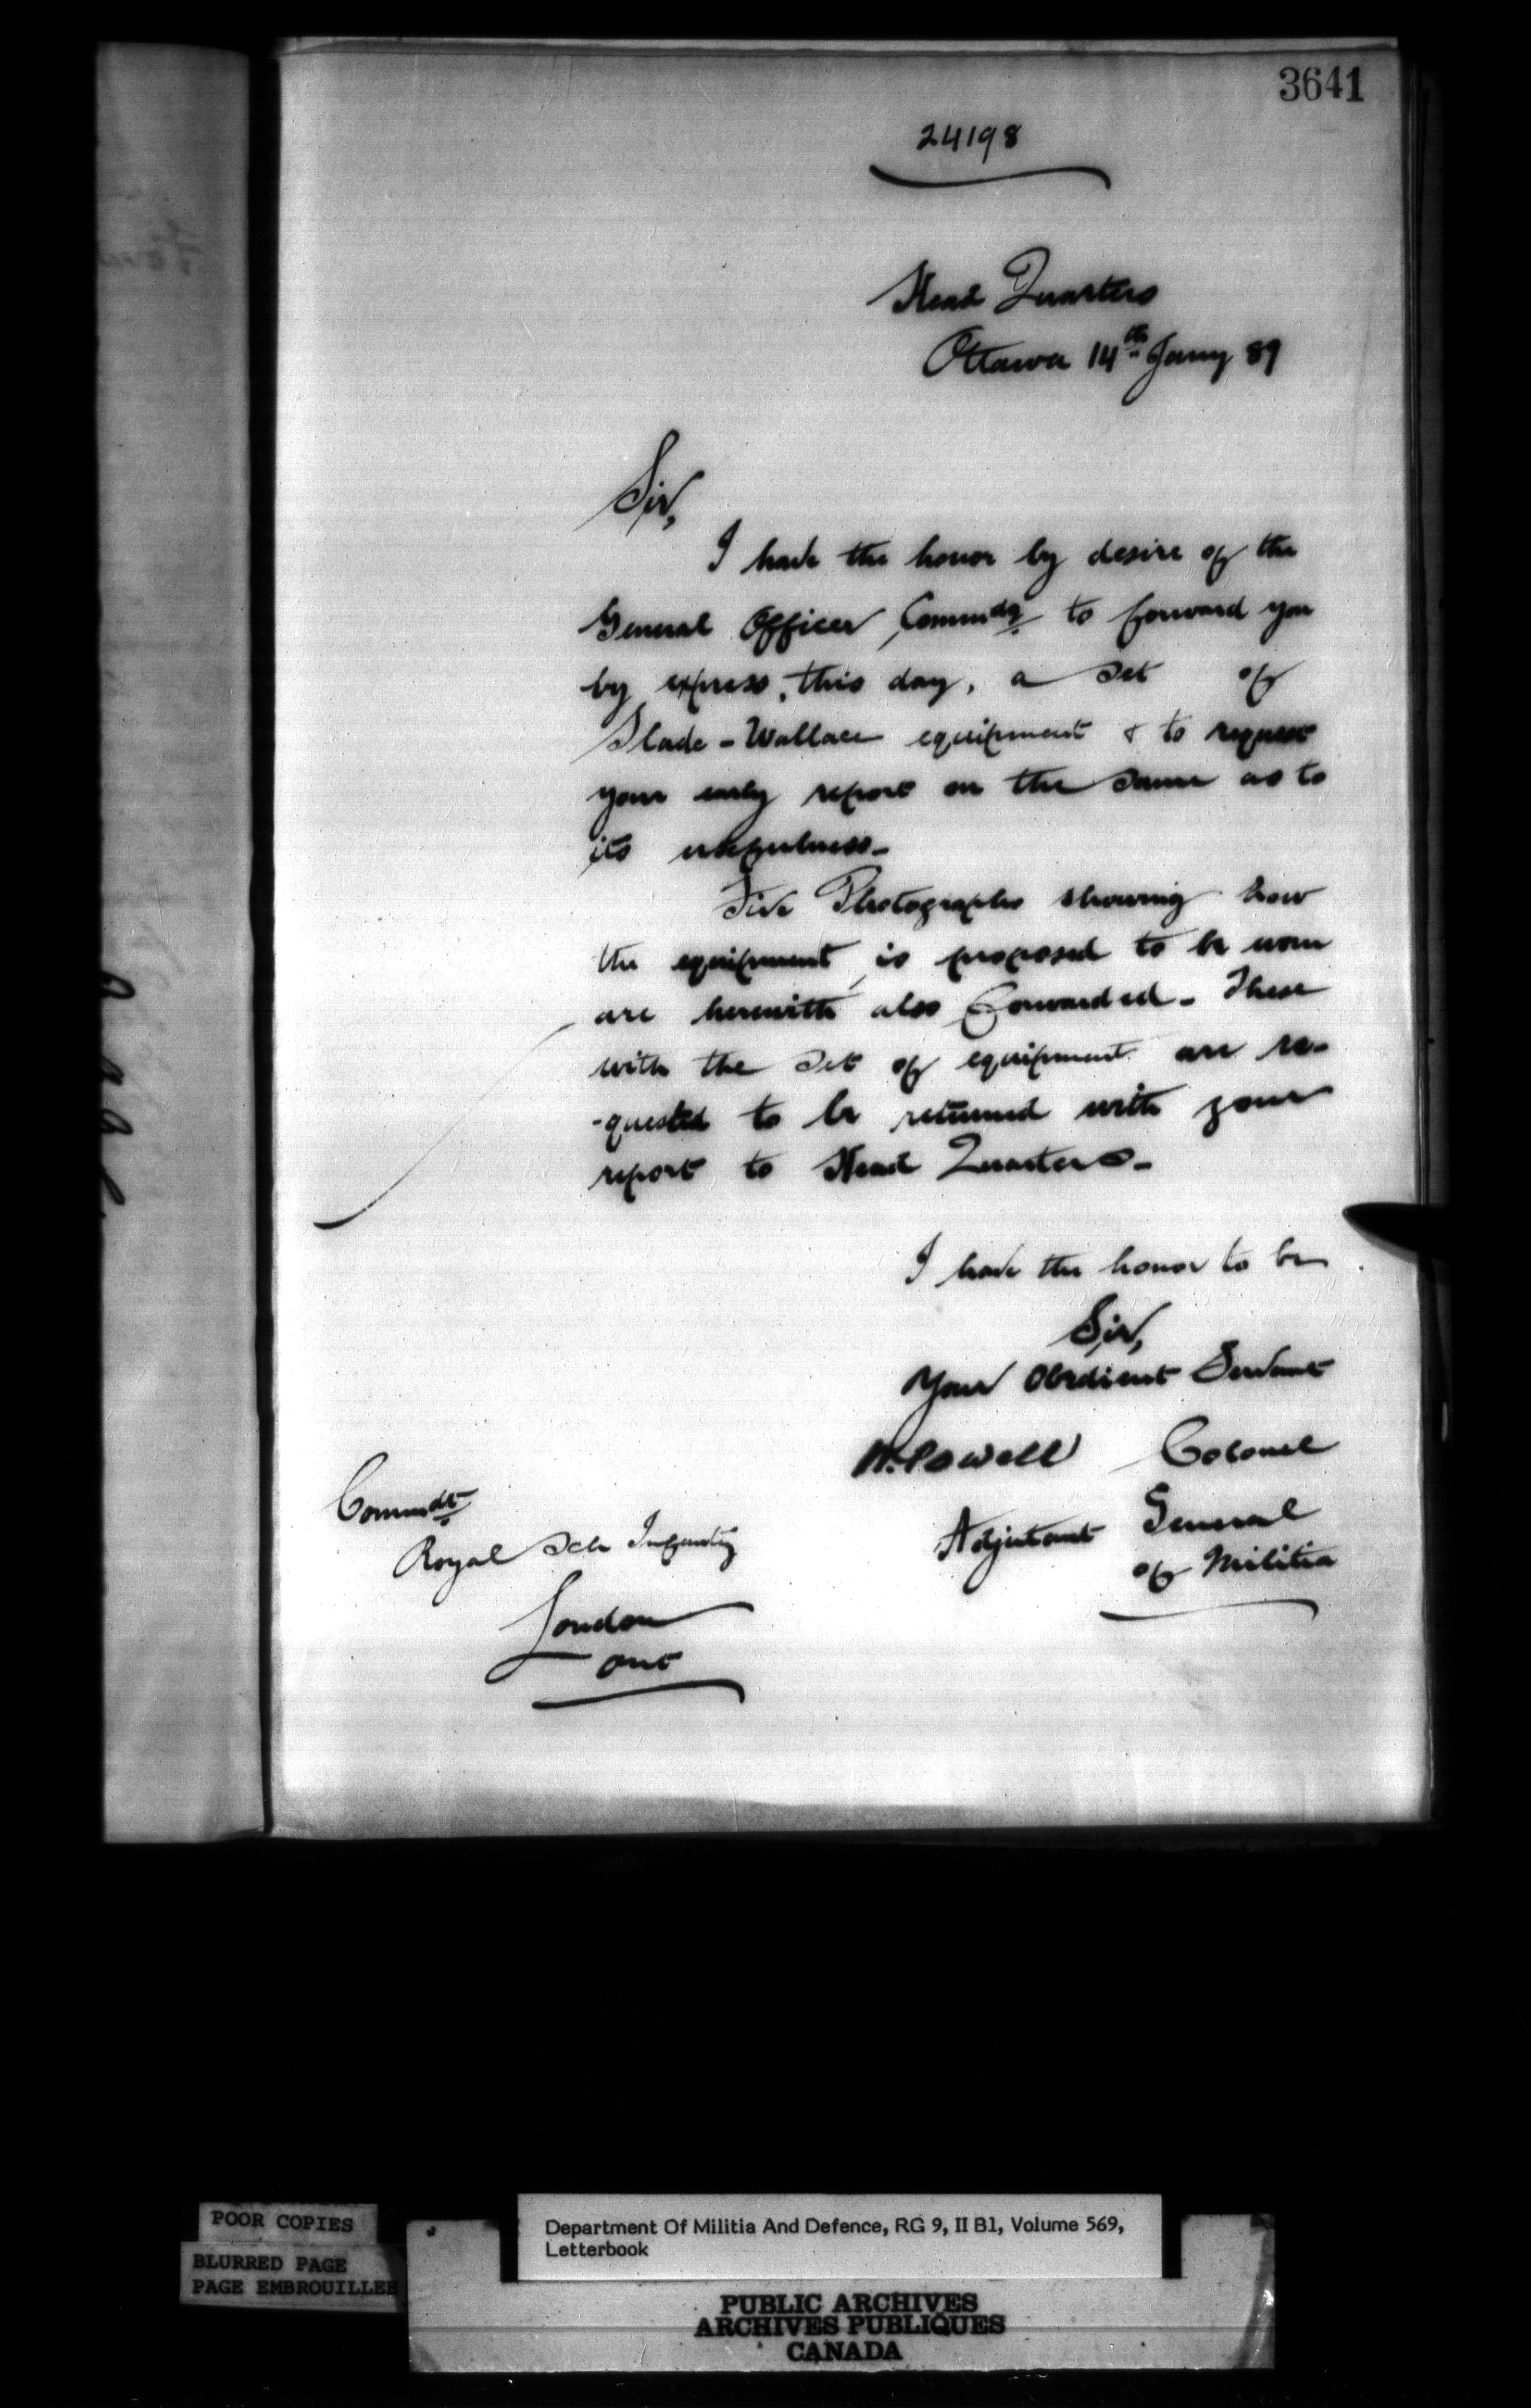 3641
24198
Head Quarters
Ottawa 14th Jany 89
Sir,
I have the honor by desire of the
General Officer Commdg to forward you
by express, this day, a set of
Slade-Wallace equipment & to request
your early report on the same as to
its usefulness-
Five Photographs showing how
the equipment is proposed to be worn
are herewith also forwarded- These
with the set of equipment are re-
-quested to be returned with your
report to Head Quarters-
I have the honor to be
Sir,
Your Obedient Servant
W. Powell Colonel
Adjutant General
of Militia
Commdt
Royal Sch Infantry
London
Ont
POOR COPIES
BLURRED PAGE
PAGE EMBROUILLEE
Department Of Militia And Defence, RG 9, II B1, Volume 569,
Letterbook
PUBLIC ARCHIVES
ARCHIVES PUBLIQUES
CANADA